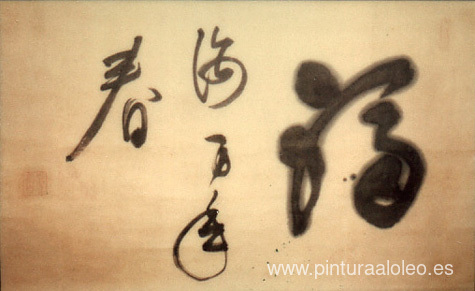 福
万年
春
www.pinturaaloleo.es